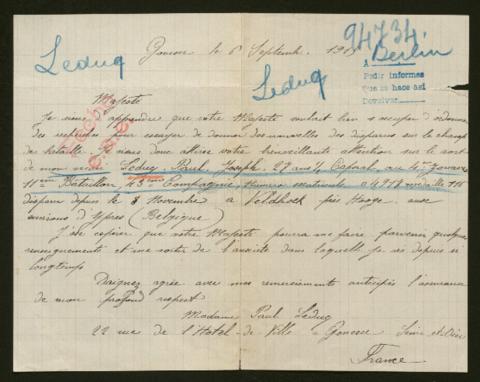 Leduq
94734
Berlin
Gonesse le 6 Septembre 1915
A
Pedir informes
que se hace así
Devolver
Leduq
Majesté
Je viens d'apprendre que votre Majesté voulait bien s'occuper d'ordonner
des recherches pour essayer de donner des nouvelles des disparus sur le champ
de bataille. Je viens donc attirer votre bienveillante attention sur le sort
de mon mari Leduq Paul Joseph 29 ans Caporal au 4me Zouaves
11ème Bataillon, 43ème Compagnie, Numéro matricule
disparu depuis le 8 Novembre à Veldhoek près Hooge aux
environs d'Ypres (Belgique)
J'ose espérer que votre Majesté pourra me faire parvenir quelques
renseignements et me sortir de l'anxiété dans laquelle je vis depuis si
longtemps
Daignez agréer avec mes remerciements anticipés l'assurance
de mon profond respect
Madame Paul Leduq
22 rue de l'Hotel-de-Ville à Gonesse Seine-et-Oise
France